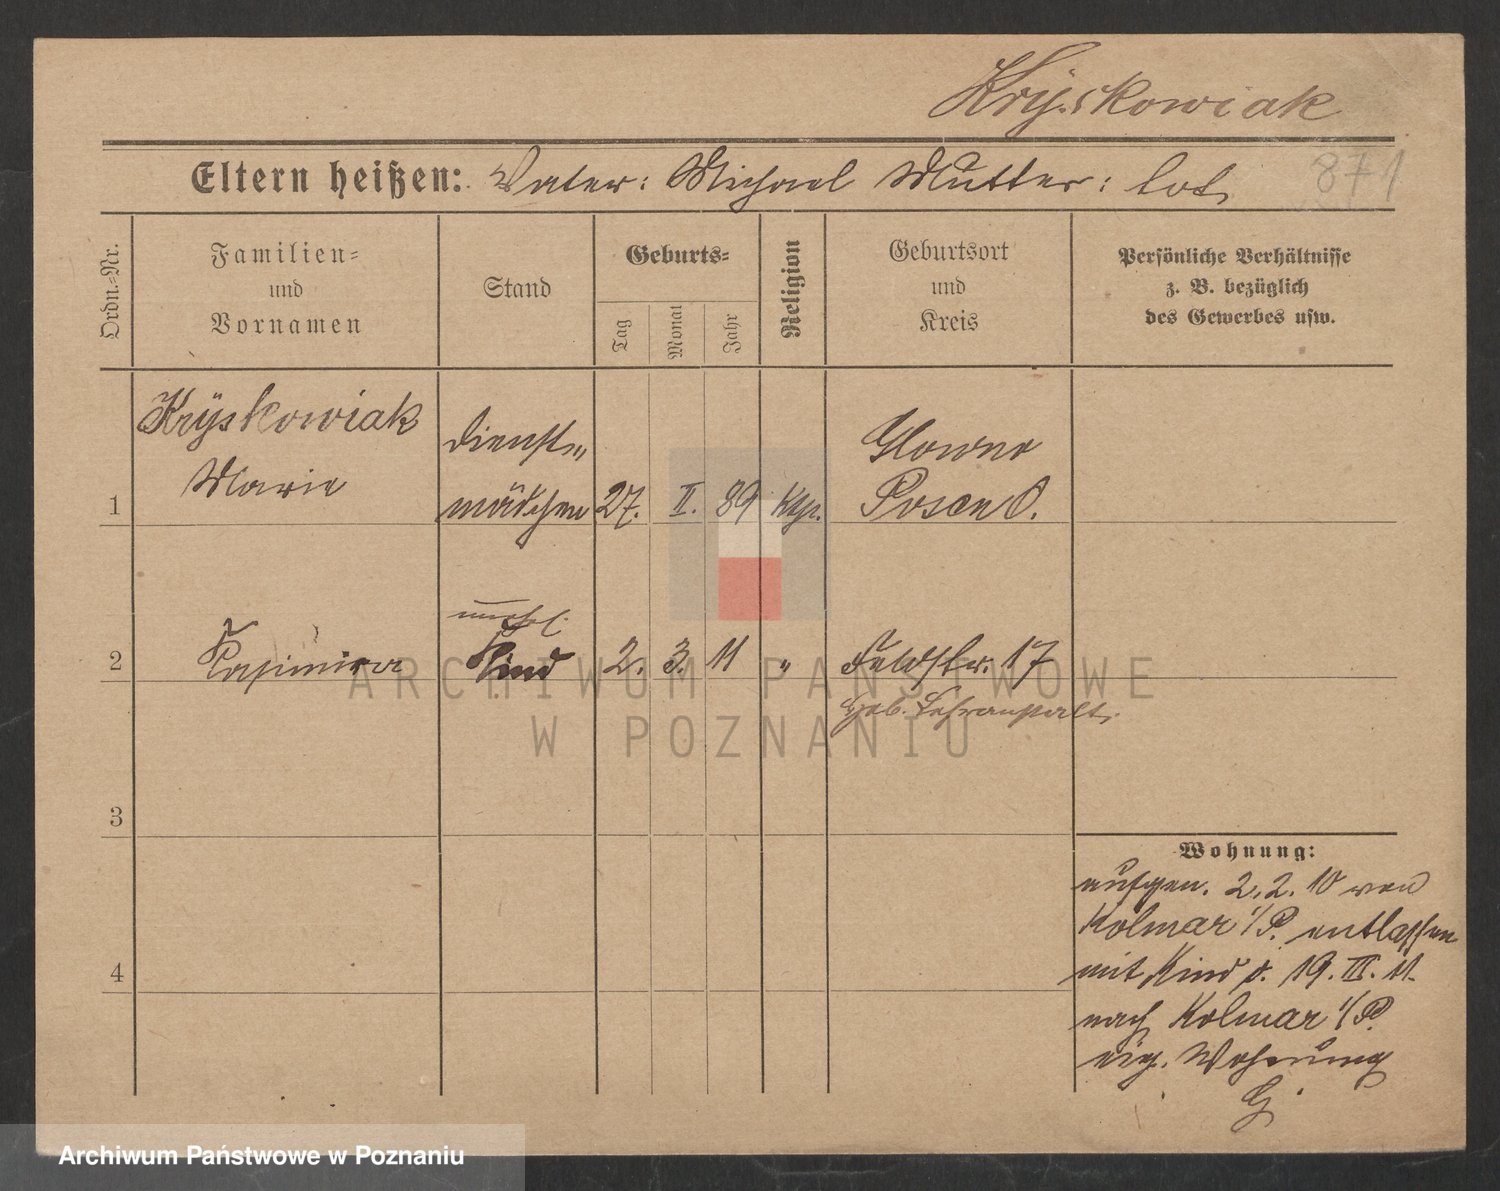 Kryskowiak
Eltern heißen: Vater: Michael Mutter: tot.
871
Ordn.-Nr.
Familien-
und
Vornamen
Stand
Geburts-
Tag
Monat
Jahr
Religion
Geburtsort
und
Kreis
Persönliche Verhältnisse
z. B. bezüglich
des Gewerbes usw.
1
Krÿskowiak
Marie
Dienst-
mädchen
27.
II.
89
Kth.
Glowno
Posen O.
2
Kasimira
unehl.
Kind
2.
3.
11
"
Feldstr. 17
Heb. Lehranstalt.
3
4
Wohnung:
aufgen. 2.2.10 von
Kolmar i/P. entlassen
mit Kind d. 19. III. 11.
nach Kolmar i/P.
eig. Wohnung
G
ARCHIWUM PAŃSTWOWE
W POZNANIU
Archiwum Państwowe w Poznaniu